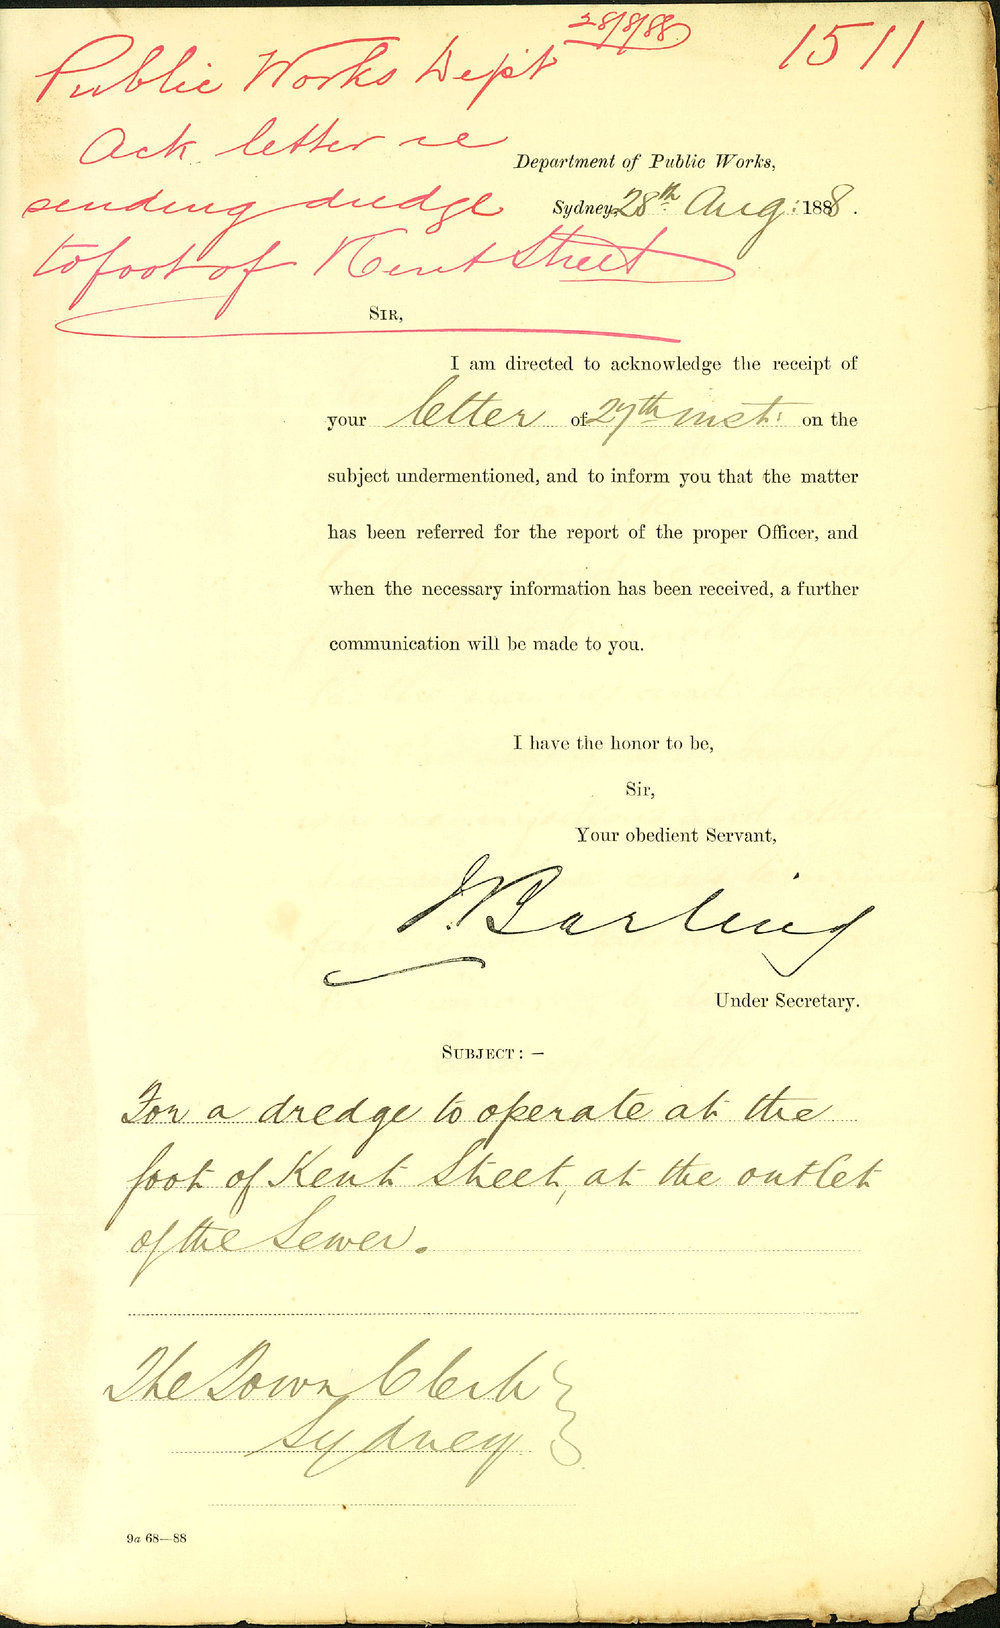 28/8/88
1511
Public Works Dept
Ack letter re
sending dredge
to foot of Kent Street
Department of Public Works,
Sydney, 28th Aug: 1888.
SIR,
I am directed to acknowledge the receipt of
your letter of 27th inst: on the
subject undermentioned, and to inform you that the matter
has been referred for the report of the proper Officer, and
when the necessary information has been received, a further
communication will be made to you.
I have the honor to be,
Sir,
Your obedient Servant,
J. Barling
Under Secretary.
SUBJECT: —
For a dredge to operate at the
foot of Kent Street, at the outlet
of the Sewer.
The Town Clerk
Sydney
9a 68—88